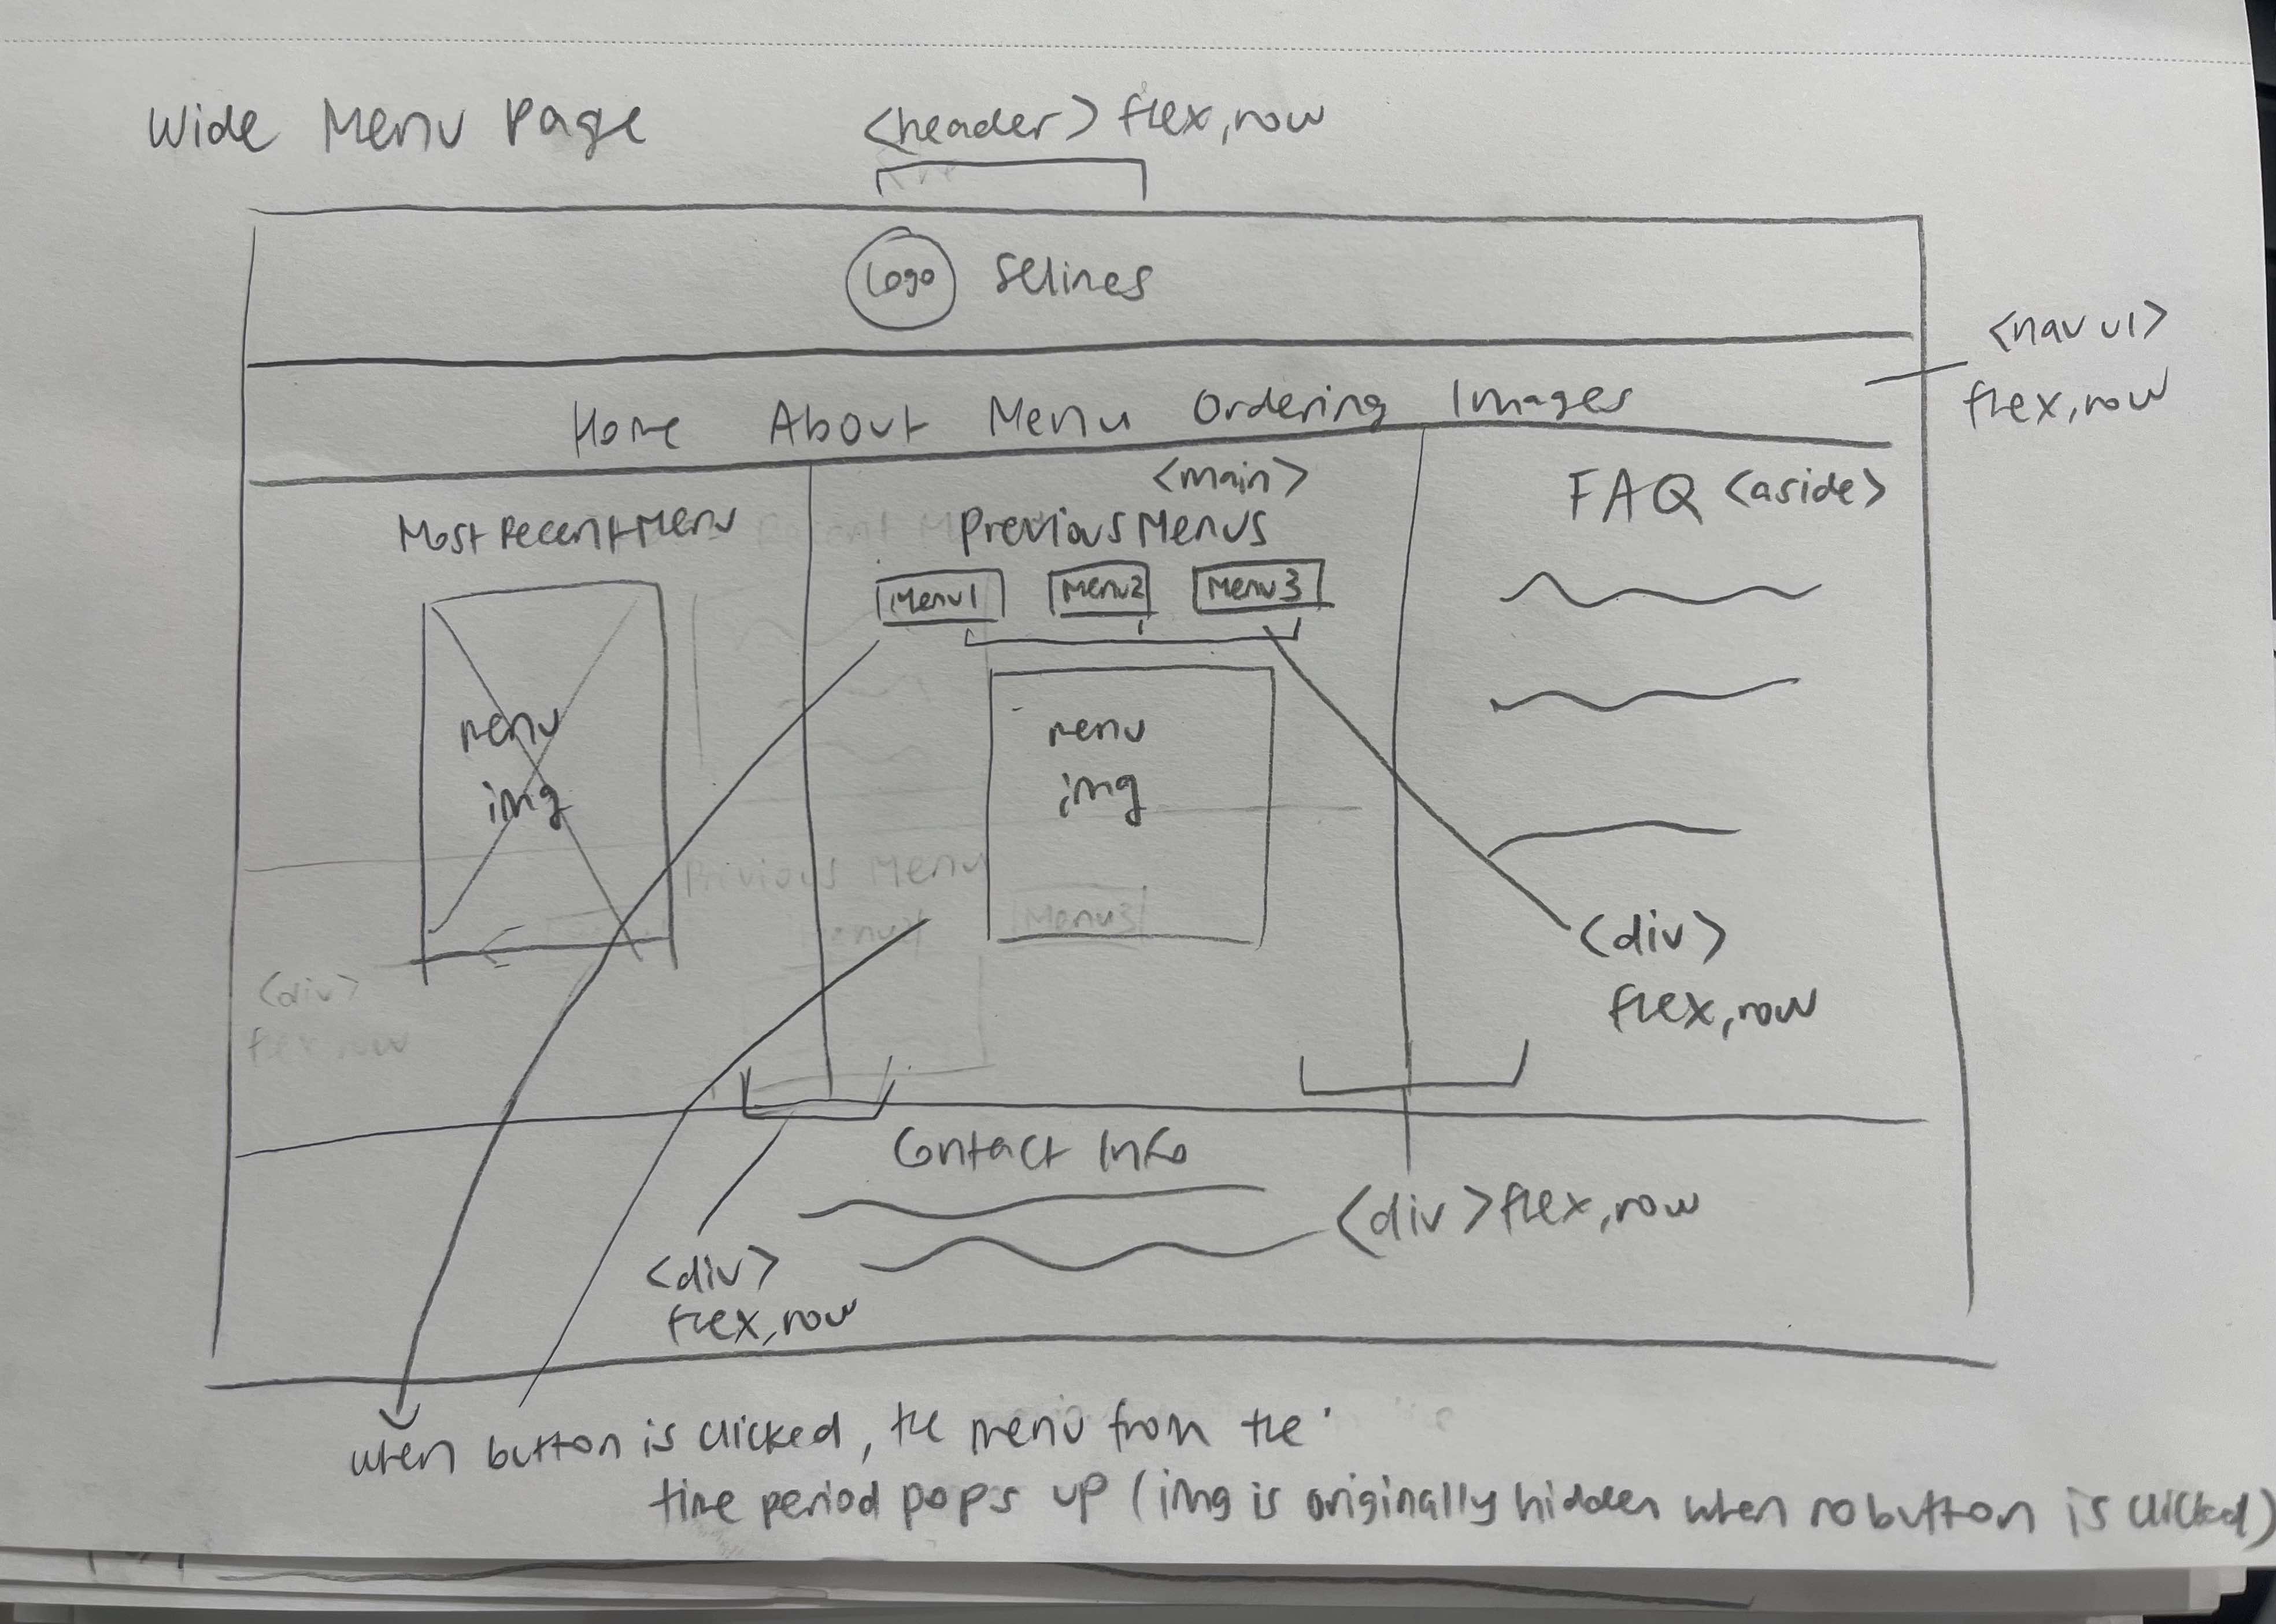 Wide Menu Page
<header> flex, row
Logo Selines
<nav ul>
flex, row
Home About Menu Ordering Images
Most Recent Menu
<main>
Previous Menus
FAQ <aside>
Menu1 Menu2 Menu3
menu
img
menu
img
Privious Menu
Menu3
<div>
flex, row
<div>
flex, row
Contact Info
<div> flex, row
<div>
flex, row
when button is clicked, the menu from the
time period pops up (img is originally hidden when no button is clicked)